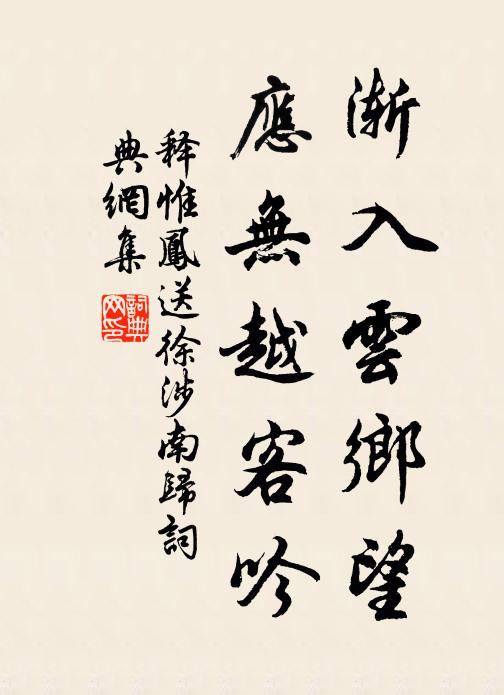 漸入雲鄉望
應無越客吟
释惟鳳送徐涉南歸詞
典網集
詞典网印